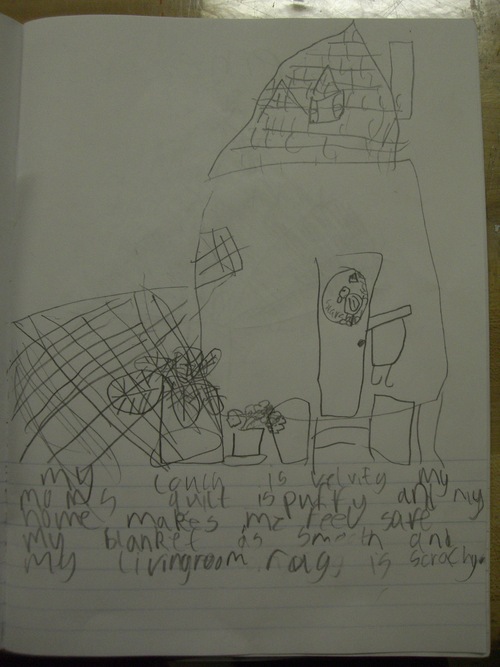 my couch is velvity my
moms quilt is puffy and my
home makes me feel safe
my blanket as smooth and
my livingroom rag is scrachy.